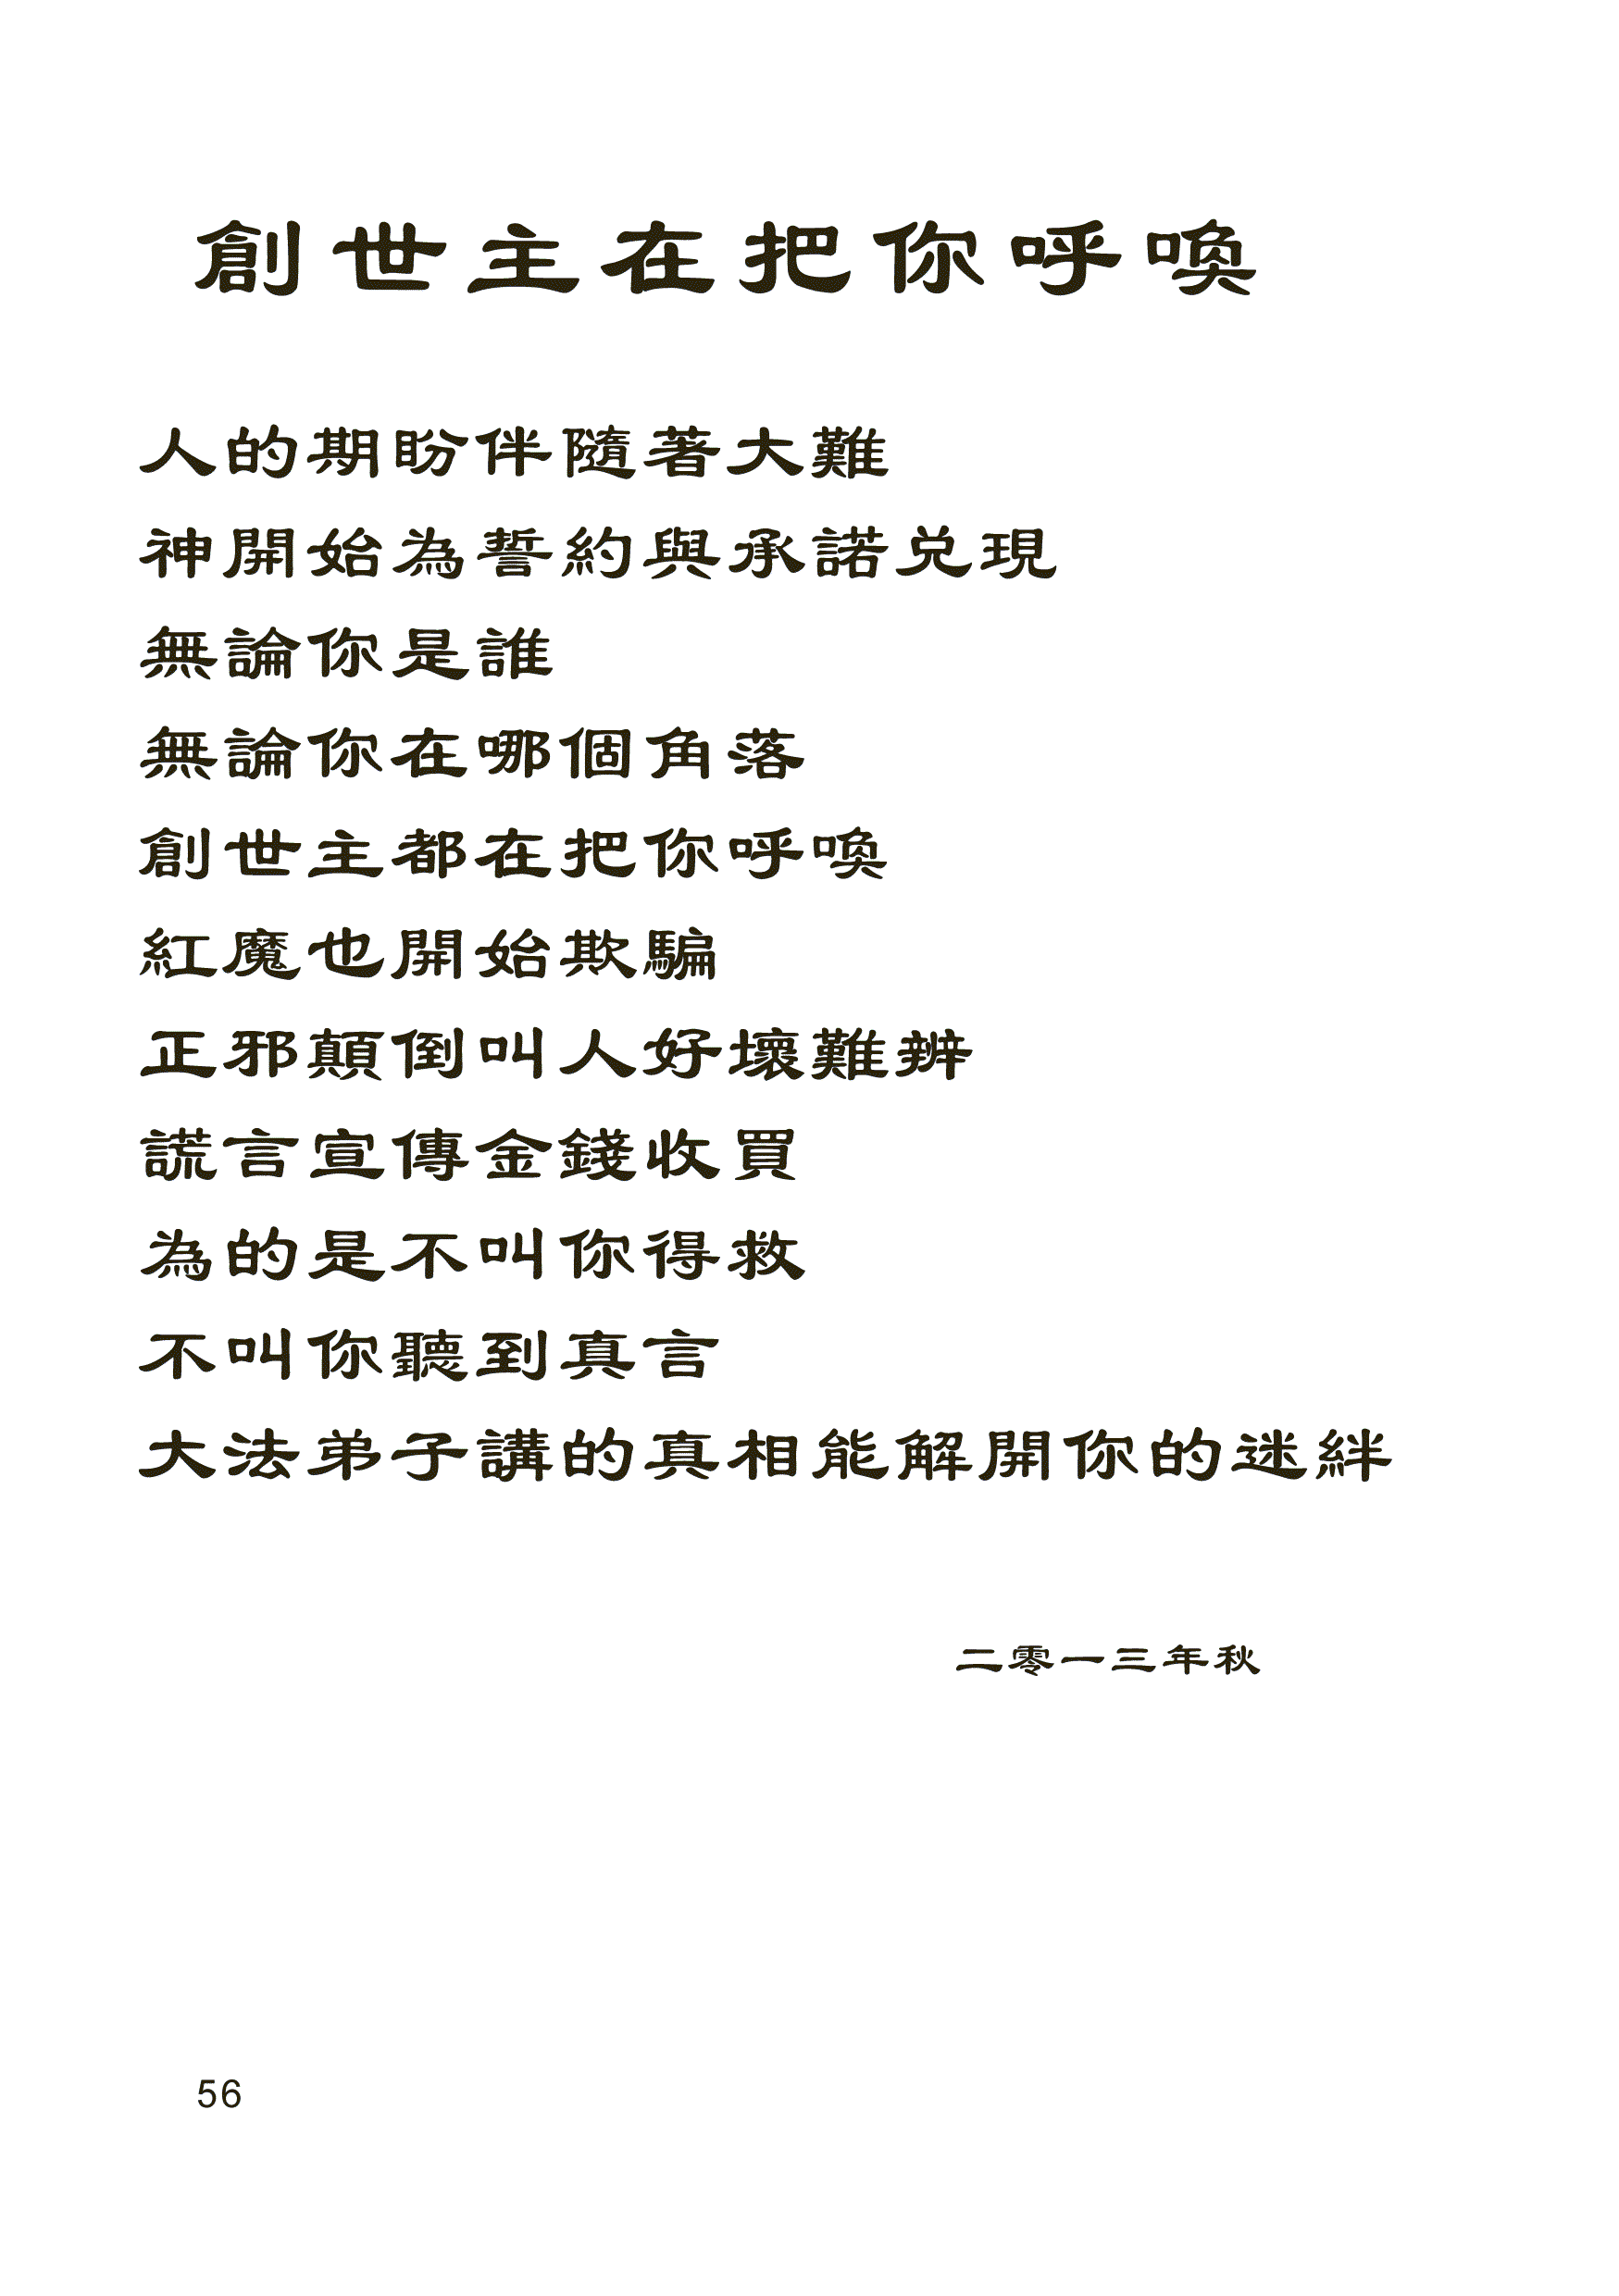 創世主在把你呼喚
人的期盼伴隨著大難
神開始為誓約與承諾兌現
無論你是誰
無論你在哪個角落
創世主都在把你呼喚
紅魔也開始欺騙
正邪顛倒叫人好壞難辨
謊言宣傳金錢收買
為的是不叫你得救
不叫你聽到真言
大法弟子講的真相能解開你的迷絆
二零一三年秋
56